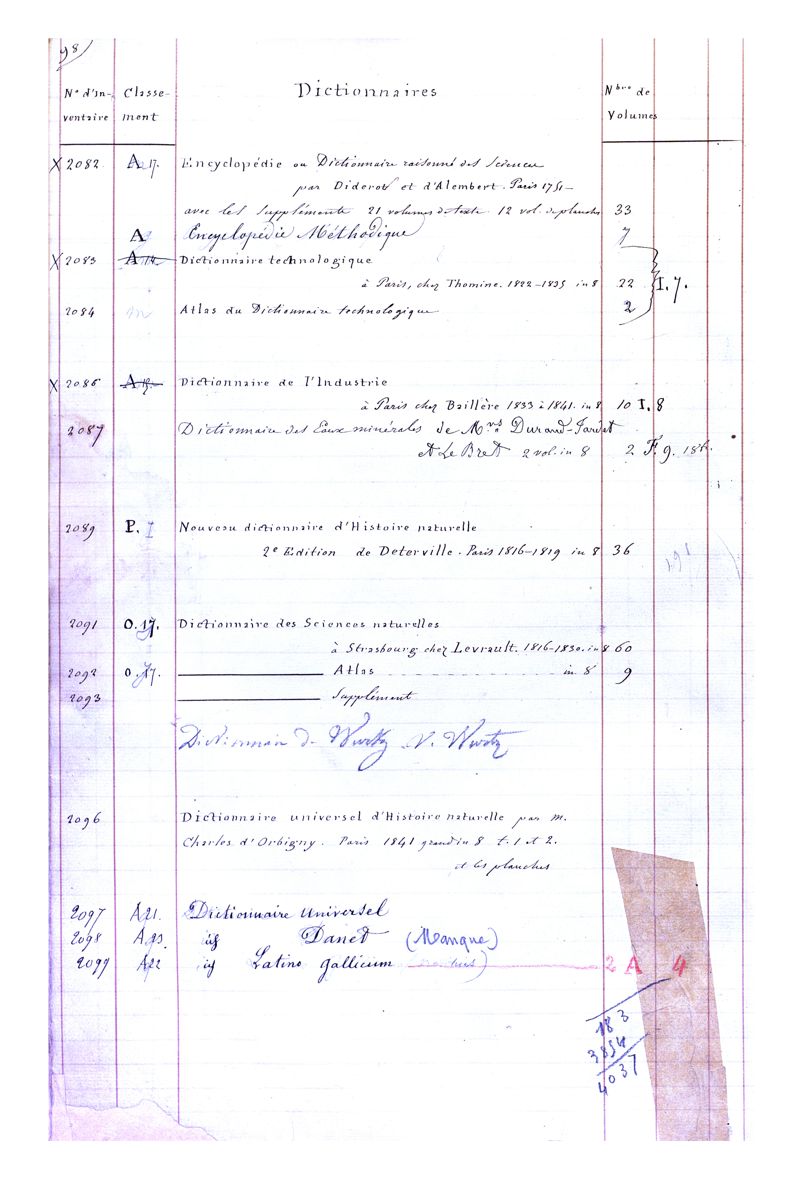 98)
N° d'In- Classe- Dictionnaires Nbre de
ventaire ment Volumes
X 2082 A 17. Encyclopédie ou Dictionnaire raisonné des Sciences
par Diderot et d'Alembert. Paris 1751-
avec les supplements 21 volumes de texte. 12 vol. de planches 33
A Encyclopédie Méthodique 7
X 2083 A 14. Dictionnaire technologique
à Paris, chez Thomine. 1822-1835 in 8 22 I. 7.
2084 Atlas du Dictionnaire technologique 2
X 2086 A 19. Dictionnaire de l'Industrie
à Paris chez Baillère 1833 à 1841. in 8 10 I. 8
2087 Dictionnaire des Eaux minérales de Mrs Durand-Fardet
et Le Bret 2 vol. in 8 2 F. 9.
2089 P. I Nouveau dictionnaire d'Histoire naturelle
2e Edition de Deterville. Paris 1816-1819 in 8 36
2091 O. 17. Dictionnaire des Sciences naturelles
à Strasbourg chez Levrault. 1816-1830. in 8 60
2092 O. 17. Atlas in 8 9
2093 Supplément
Dictionnaire de Wurtz V. Wurtz
2096 Dictionnaire universel d'Histoire naturelle par M.
Charles d'Orbigny. Paris 1841 grand in 8 t. 1 et 2.
et les planches
2097 A21. Dictionnaire Universel
2098 A23. id Danet (Manque)
2099 A22 id Latino gallicum 2 A 4
183
3854
4037